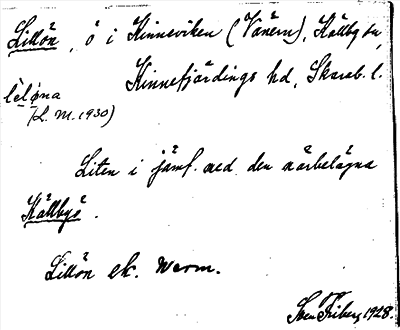 Lillön, ö i Kinneviken (Vänern), Källby sn,
Kinnefjärdings hd, Skarab. l.
lìløna
(L. M. 1930)
Liten i jämf. med den närbelägna
Källbyö.
Lillön ek. Werm.
Sven Friberg 1928.